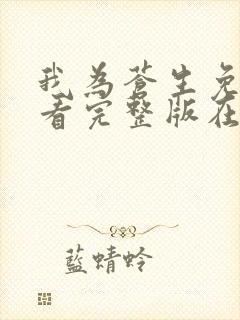 我为苍生免
看完整版在
蓝蜻蛉